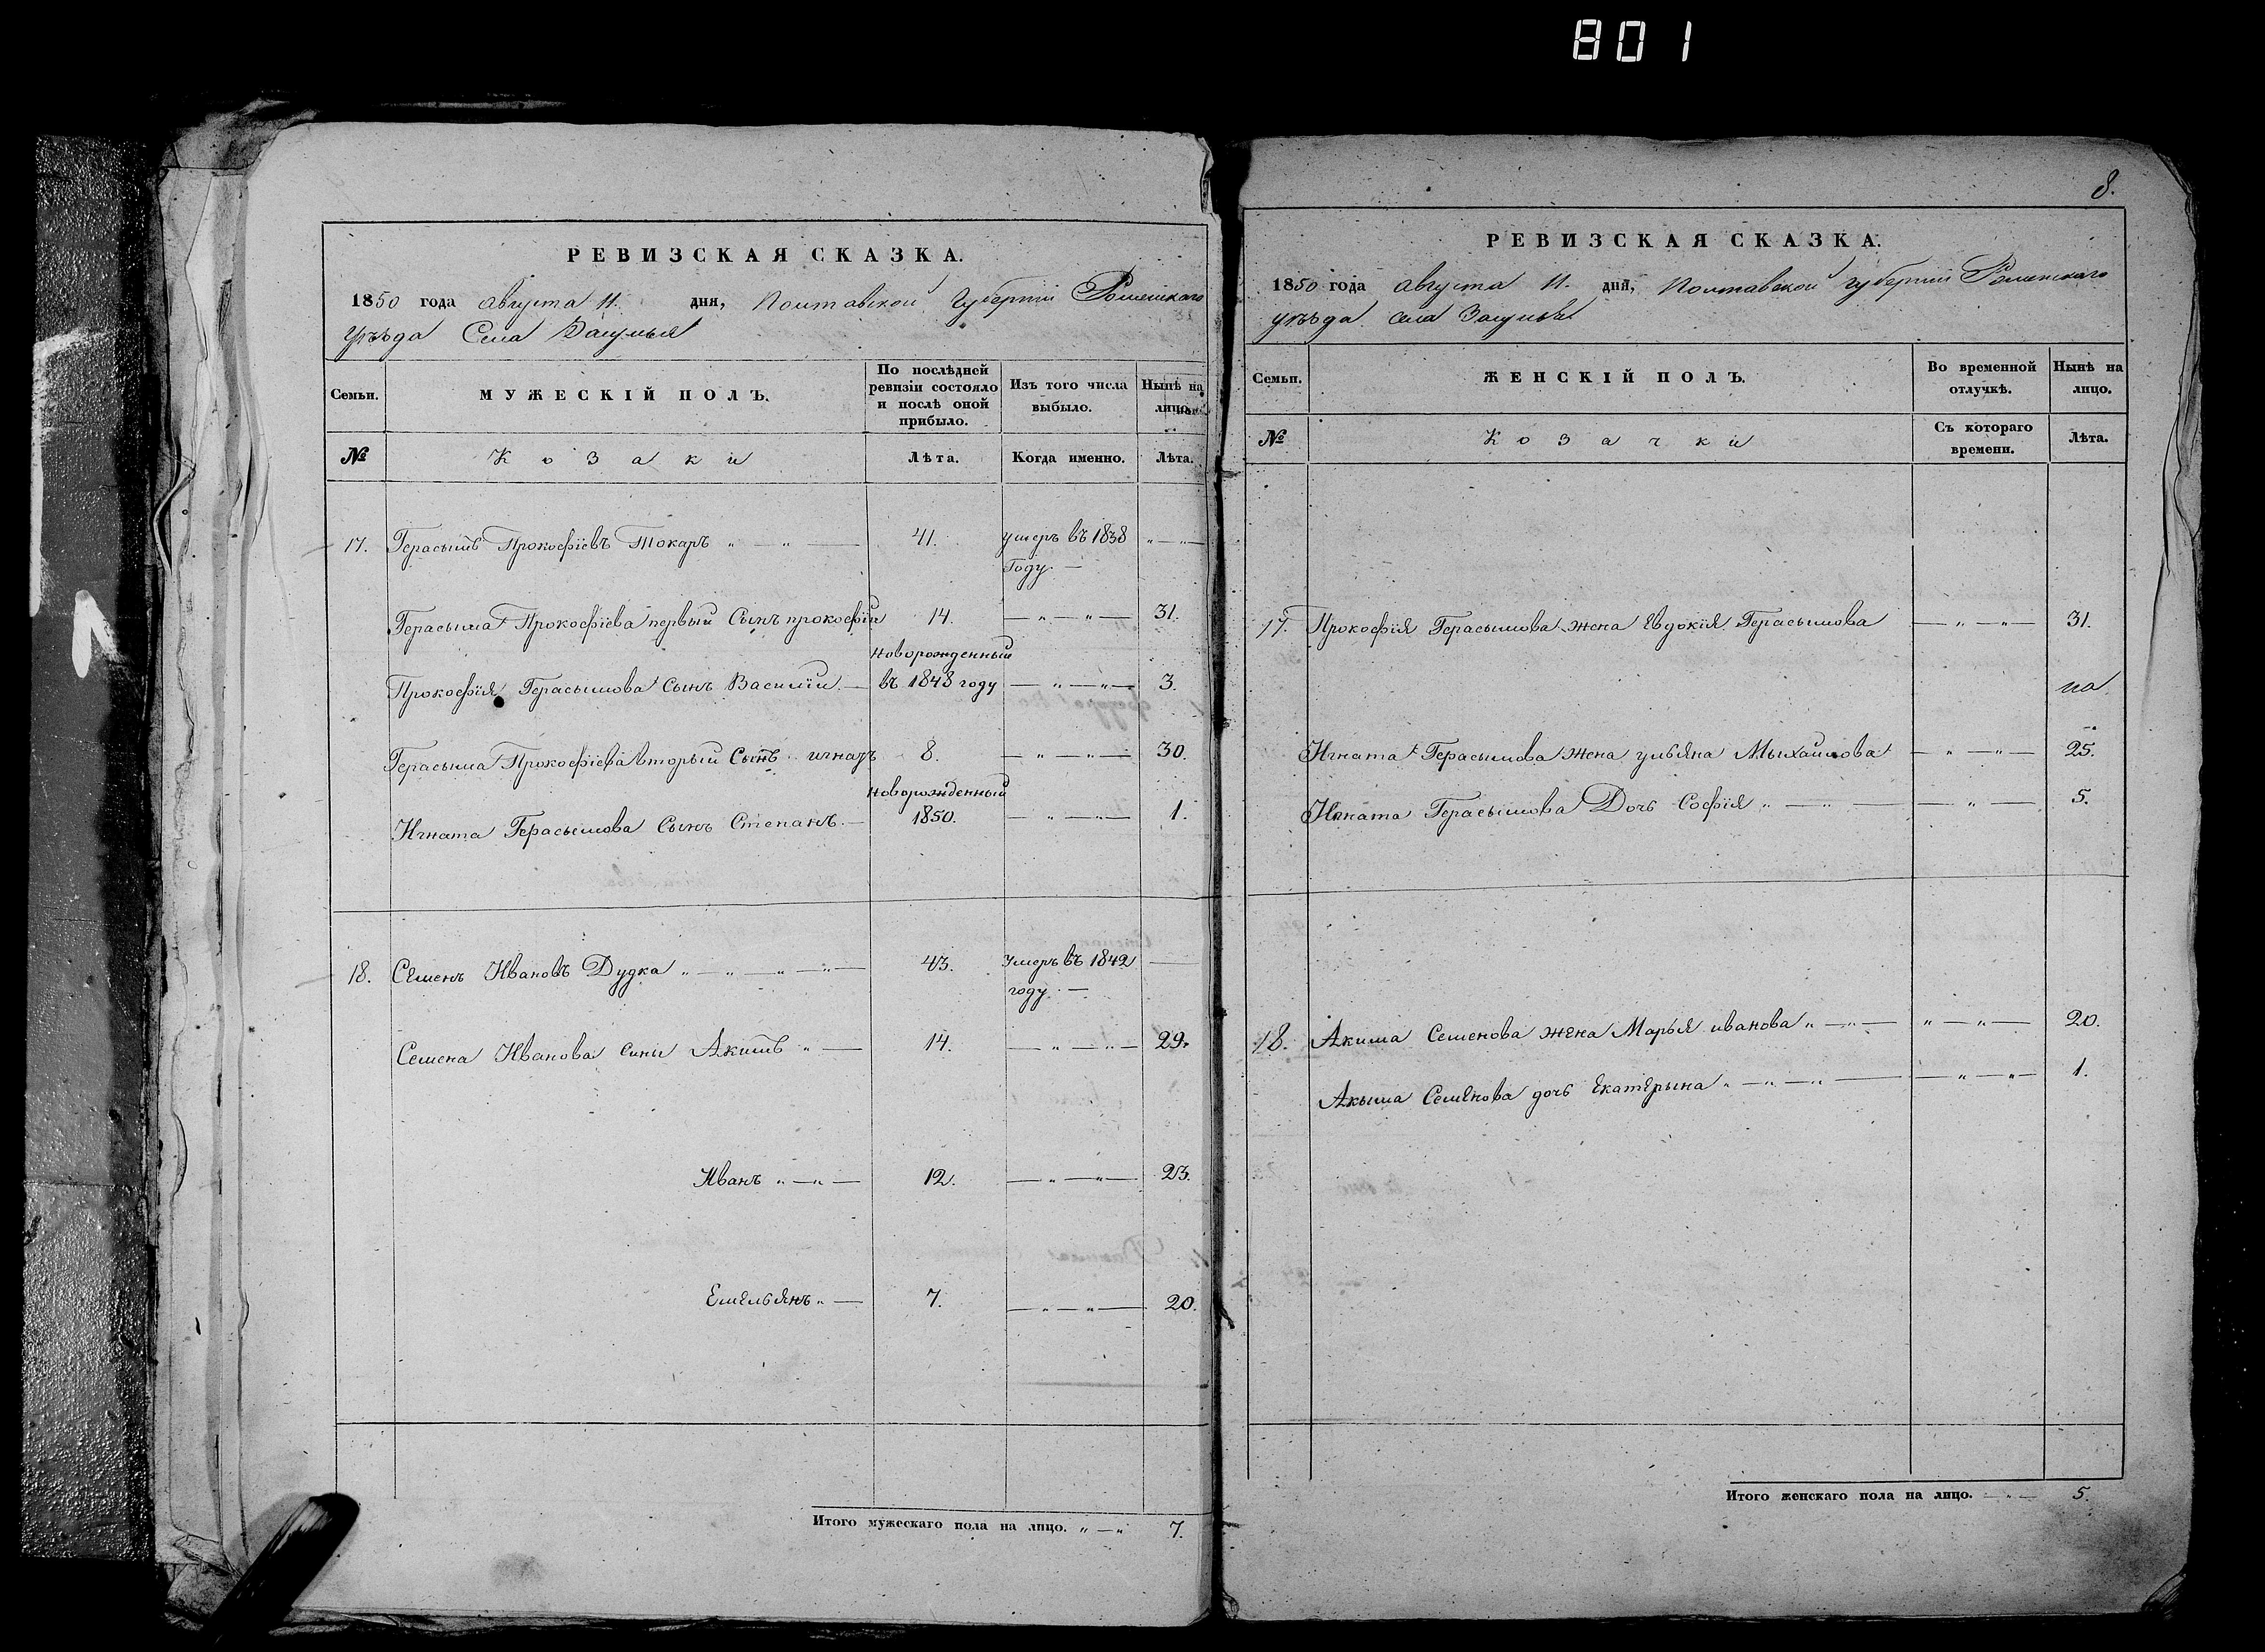 801
РЕВИЗСКАЯ СКАЗКА.
1850 года августа 11. дня, Полтавской Губерніи Роменскаго
Уѣзда Села Засулья
Семьи.
МУЖЕСКІЙ ПОЛЪ.
По послѣдней ревизіи состояло и послѣ оной прибыло.
Изъ того числа выбыло.
Нынѣ на лицо.
№
Козаки
Лѣта.
Когда именно.
Лѣта.
17. Герасымъ Прокофіевъ Токарь „ — „ — 41. умеръ въ 1838 „ — „ —
Году. —
Герасыма Прокофіева первый Сынъ прокофій 14. — „ — „ — 31.
новорожденный
Прокофія Герасымова Сынъ Василій. — въ 1848 году — „ — „ — 3.
Герасыма Прокофіева вторый Сынъ игнатъ 8. — „ — „ — 30.
новорожденный
Игната Герасымова Сынъ Степанъ. — 1850. — „ — „ — 1.
18. Семенъ Ивановъ Дудка „ — „ — „ — „ — 43. Умеръ въ 1842 —
году. —
Семена Иванова сини Акимъ „ — 14. — „ — „ — 29.
Иванъ „ — „ — 12. — „ — „ — 23.
Емельянъ „ — 7. — „ — „ — 20.
Итого мужескаго пола на лицо. „ — „ 7.
8.
РЕВИЗСКАЯ СКАЗКА.
1850 года августа 11. дня, Полтавской губерніи Роменскаго
уѣзда села Засулья
Семьи.
ЖЕНСКІЙ ПОЛЪ.
Во временной отлучкѣ.
Нынѣ на лицо.
№
Козачки
Съ котораго времени.
Лѣта.
17. Прокофія Герасымова жена Евдокія Герасымова — „ — „ — 31.
Игната Герасымова жена ульяна Мыхайлова — „ — „ — 25.
Игната Герасымова Дочь Софія „ — „ — — „ — 5.
18. Акима Семенова жена Марья иванова „ — „ — „ — „ — 20.
Акыма Семенова дочь Екатерына „ — „ — „ — — „ — „ — 1.
Итого женскаго пола на лицо. — „ — 5.